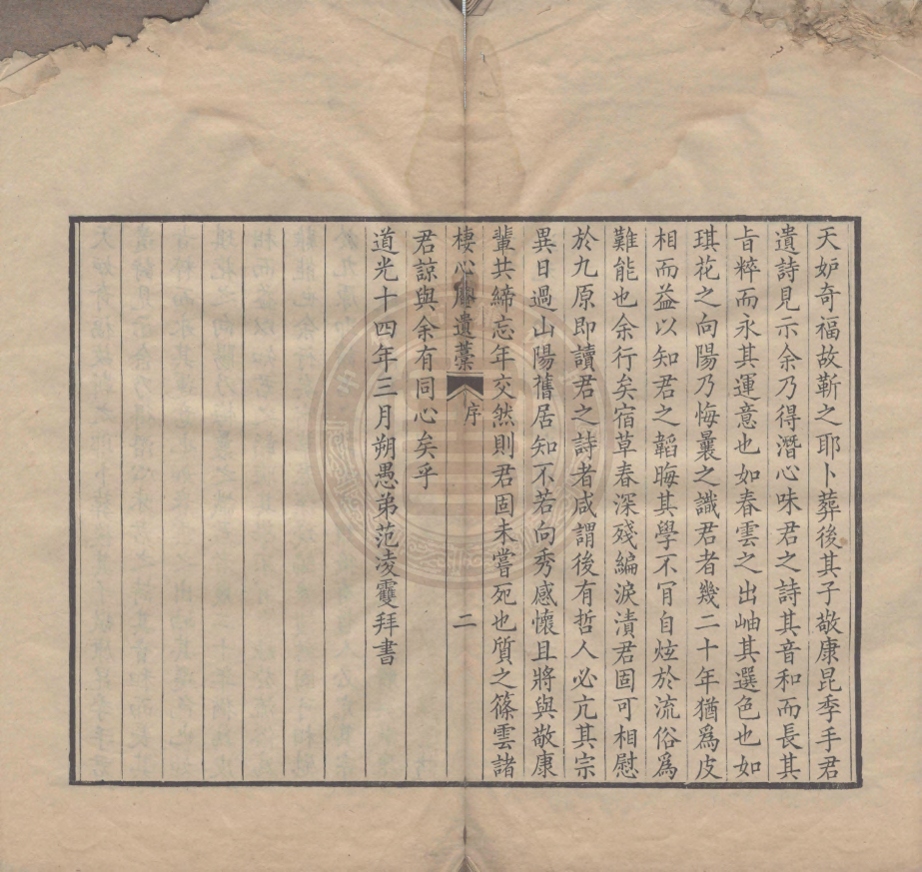 天妒奇福故靳之耶卜葬後其子敬康昆季手君
遺詩見示余乃得潛心味君之詩其音和而長其
旨粹而永其運意也如春雲之出岫其選色也如
琪花之向陽乃悔曩之識君者幾二十年猶爲皮
相而益以知君之韜晦其學不肎自炫於流俗爲
難能也余行矣宿草春深殘編淚漬君固可相慰
於九原即讀君之詩者咸謂後有哲人必亢其宗
異日過山陽舊居知不若向秀感懷且將與敬康
輩共締忘年交然則君固未嘗死也質之篠雲諸
棲心廬遺藁 序 二
君諒與余有同心矣乎
道光十四年三月朔愚弟范凌䨇拜書